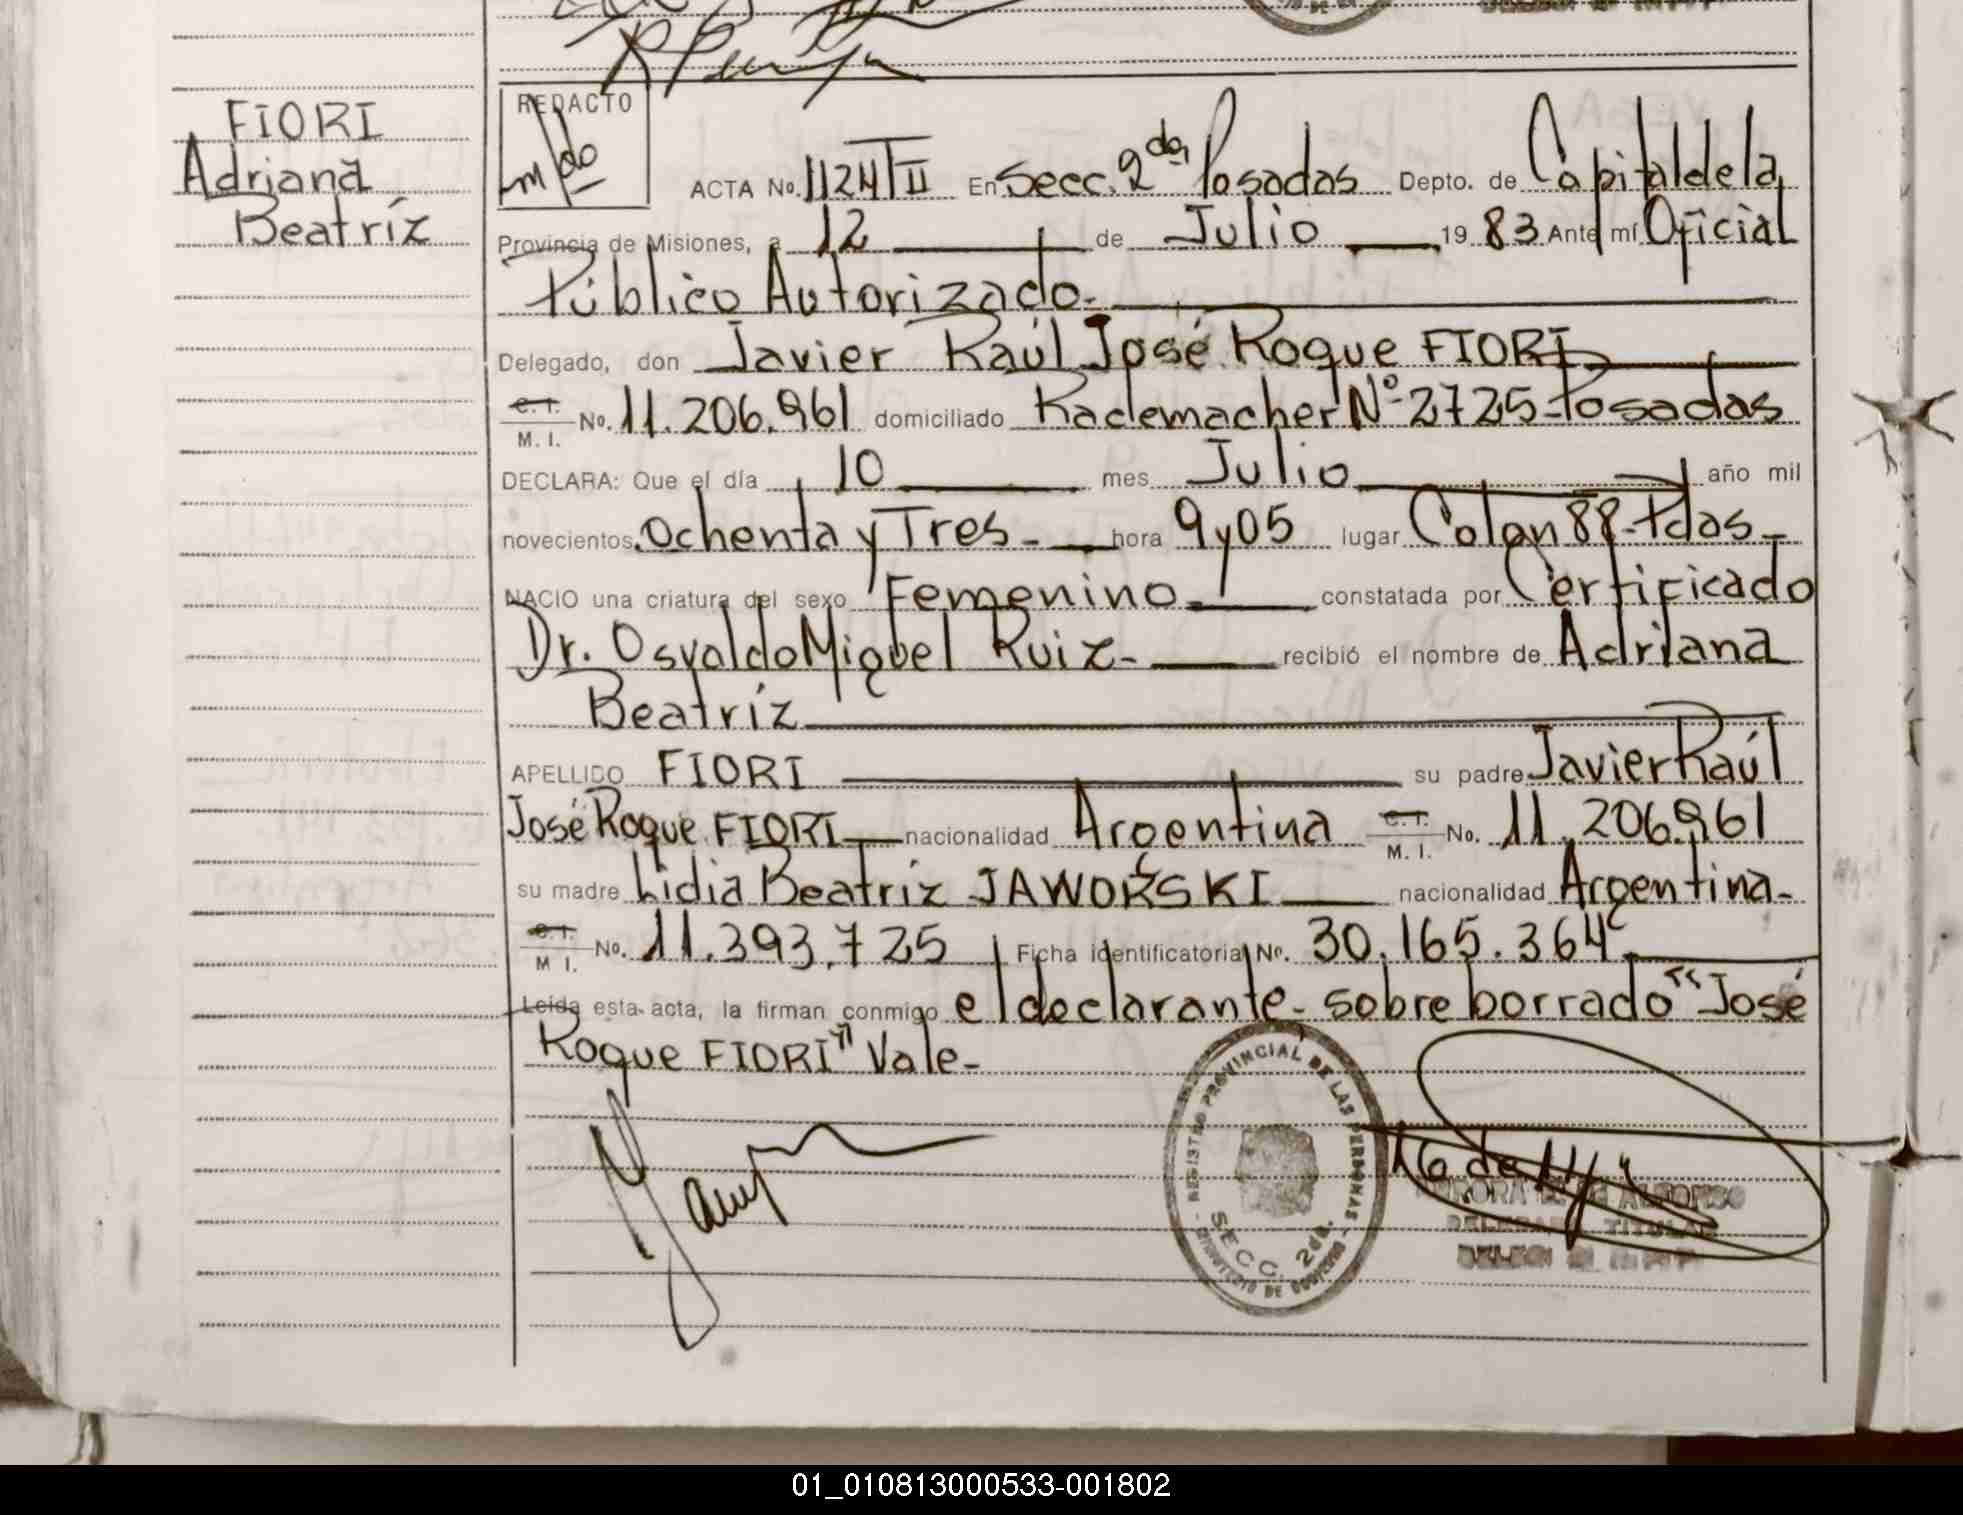 FIORI
Adriana
Beatríz
REDACTO
ACTA No. 1124 T II En Secc. 2da Posadas Depto. de Capital de la
Provincia de Misiones, a 12 de Julio 1983 Ante mí Oficial
Público Autorizado.
Delegado, don Javier Raúl José Roque FIORI
C. I. M. I. No. 11.206.961 domiciliado Rademacher Nº 2725 - Posadas
DECLARA: Que el día 10 mes Julio año mil
novecientos ochenta y Tres - hora 9 y 05 lugar Colon 88 - Pdas -
NACIO una criatura del sexo Femenino - constatada por Certificado
Dr. Osvaldo Miguel Ruiz - recibió el nombre de Adriana
Beatríz
APELLIDO FIORI su padre Javier Raúl
José Roque FIORI nacionalidad Argentina C. I. M. I. No. 11.206.961
su madre Lidia Beatríz JAWORSKI nacionalidad Argentina -
C. I. M. I. No. 11.393.725 Ficha identificatoria No. 30.165.364
Leída esta acta, la firman conmigo el declarante - sobre borrado "José
Roque FIORI" Vale -
REGISTRO PROVINCIAL DE LAS PERSONAS
SECC. 2da.
01_010813000533-001802